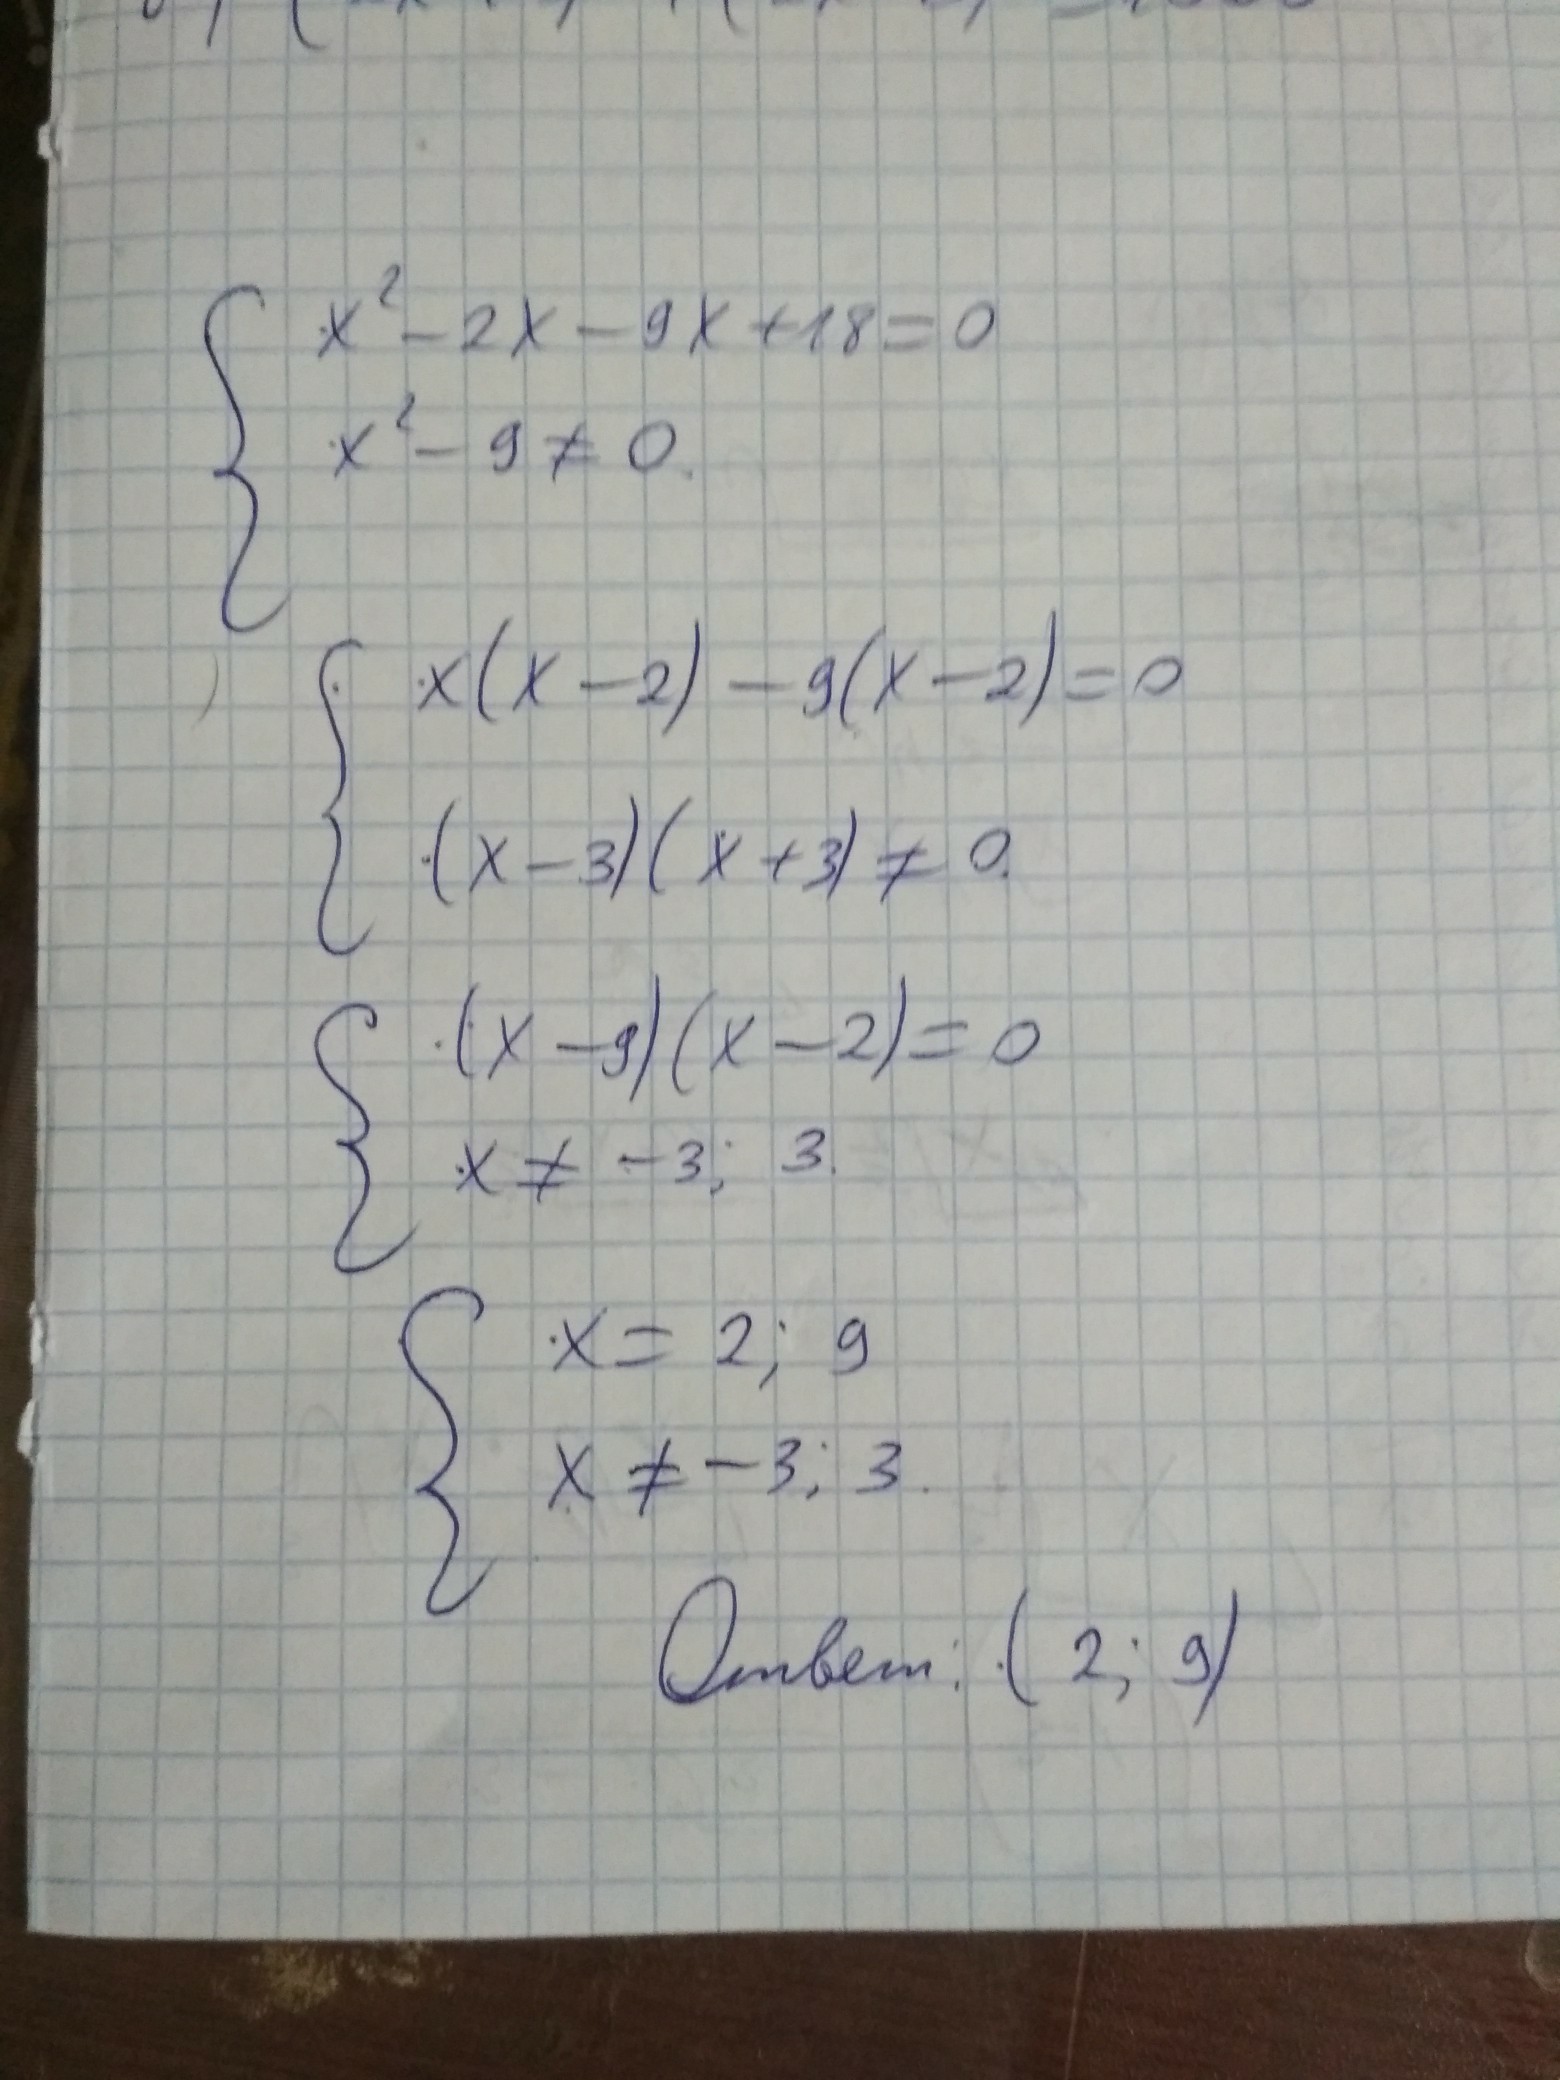 x² - 2x - 9x + 18 = 0
x² - 9 ≠ 0.
x(x - 2) - 9(x - 2) = 0
(x - 3)(x + 3) ≠ 0.
(x - 9)(x - 2) = 0
x ≠ -3; 3.
x = 2; 9
x ≠ -3; 3.
Ответ: (2; 9)